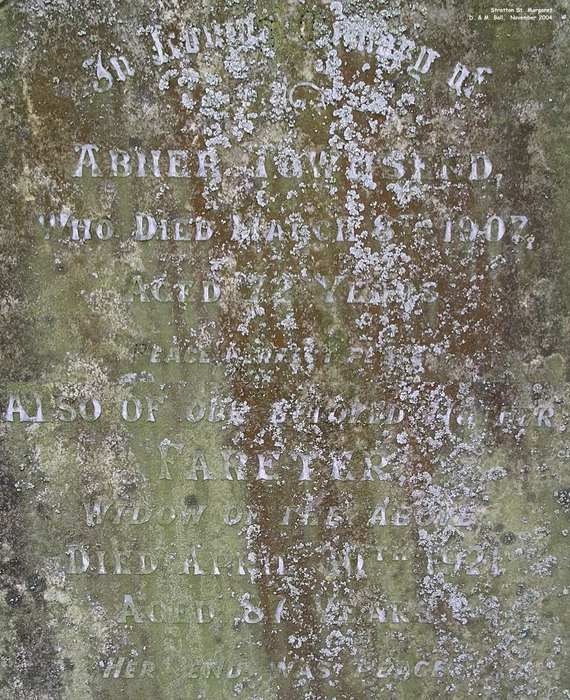 Stratton St. Margaret
D. & M. Ball, November 2004
In Loving Memory of
ABNER TOWNSEND,
WHO DIED MARCH 8TH 1907,
AGED 72 YEARS
PEACE PERFECT PEACE
ALSO OF OUR BELOVED MOTHER
WIDOW OF THE ABOVE
DIED APRIL 1921
AGED 87 YEARS
HER END WAS PEACE